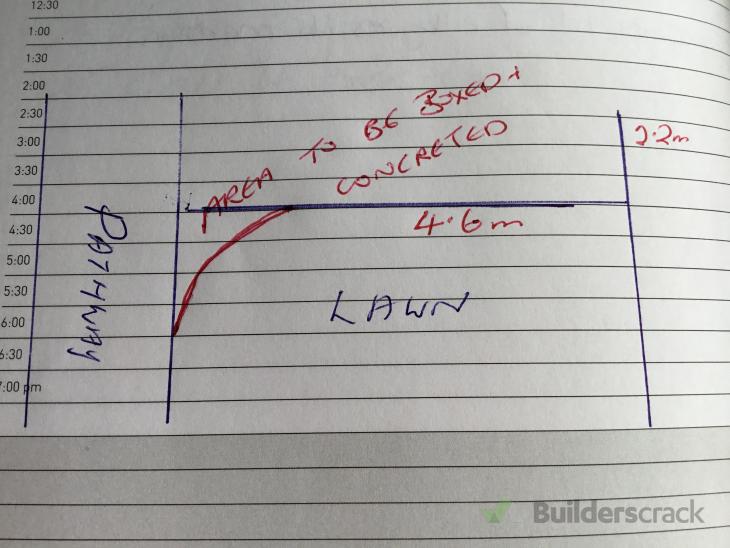 12:30
1:00
1:30
2:00
2:30
3:00
3:30
4:00
4:30
5:00
5:30
6:00
6:30
7:00 pm
AREA TO BE BOXED +
CONCRETED
2.2m
4.6m
PATHWAY
LAWN
Builderscrack